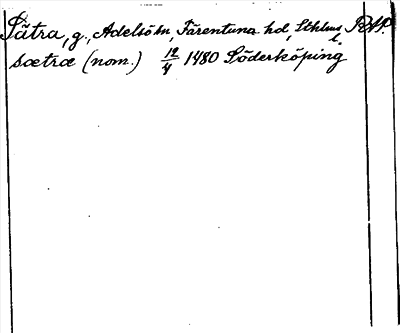 Sätra, g., Adelsö sn, Färentuna hd, Sthlms l. RM.
sætræ (nom.) 12/4 1480 Söderköping